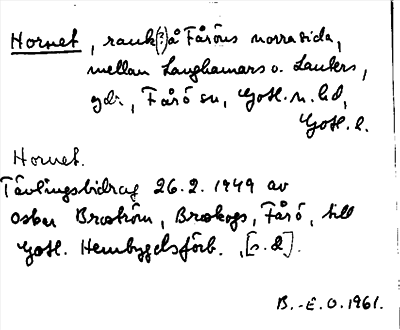 Hornet, rauk(?) å Fåröns norra sida,
mellan Langhamars o. Lauters,
gdr, Fårö sn, Gotl. n. hd,
Gotl. l.
Hornet.
Tävlingsbidrag 26.2.1949 av
Oskar Broström, Broskogs, Fårö, till
Gotl. Hembygdsförb., [s. 2].
B.-E. O. 1961.